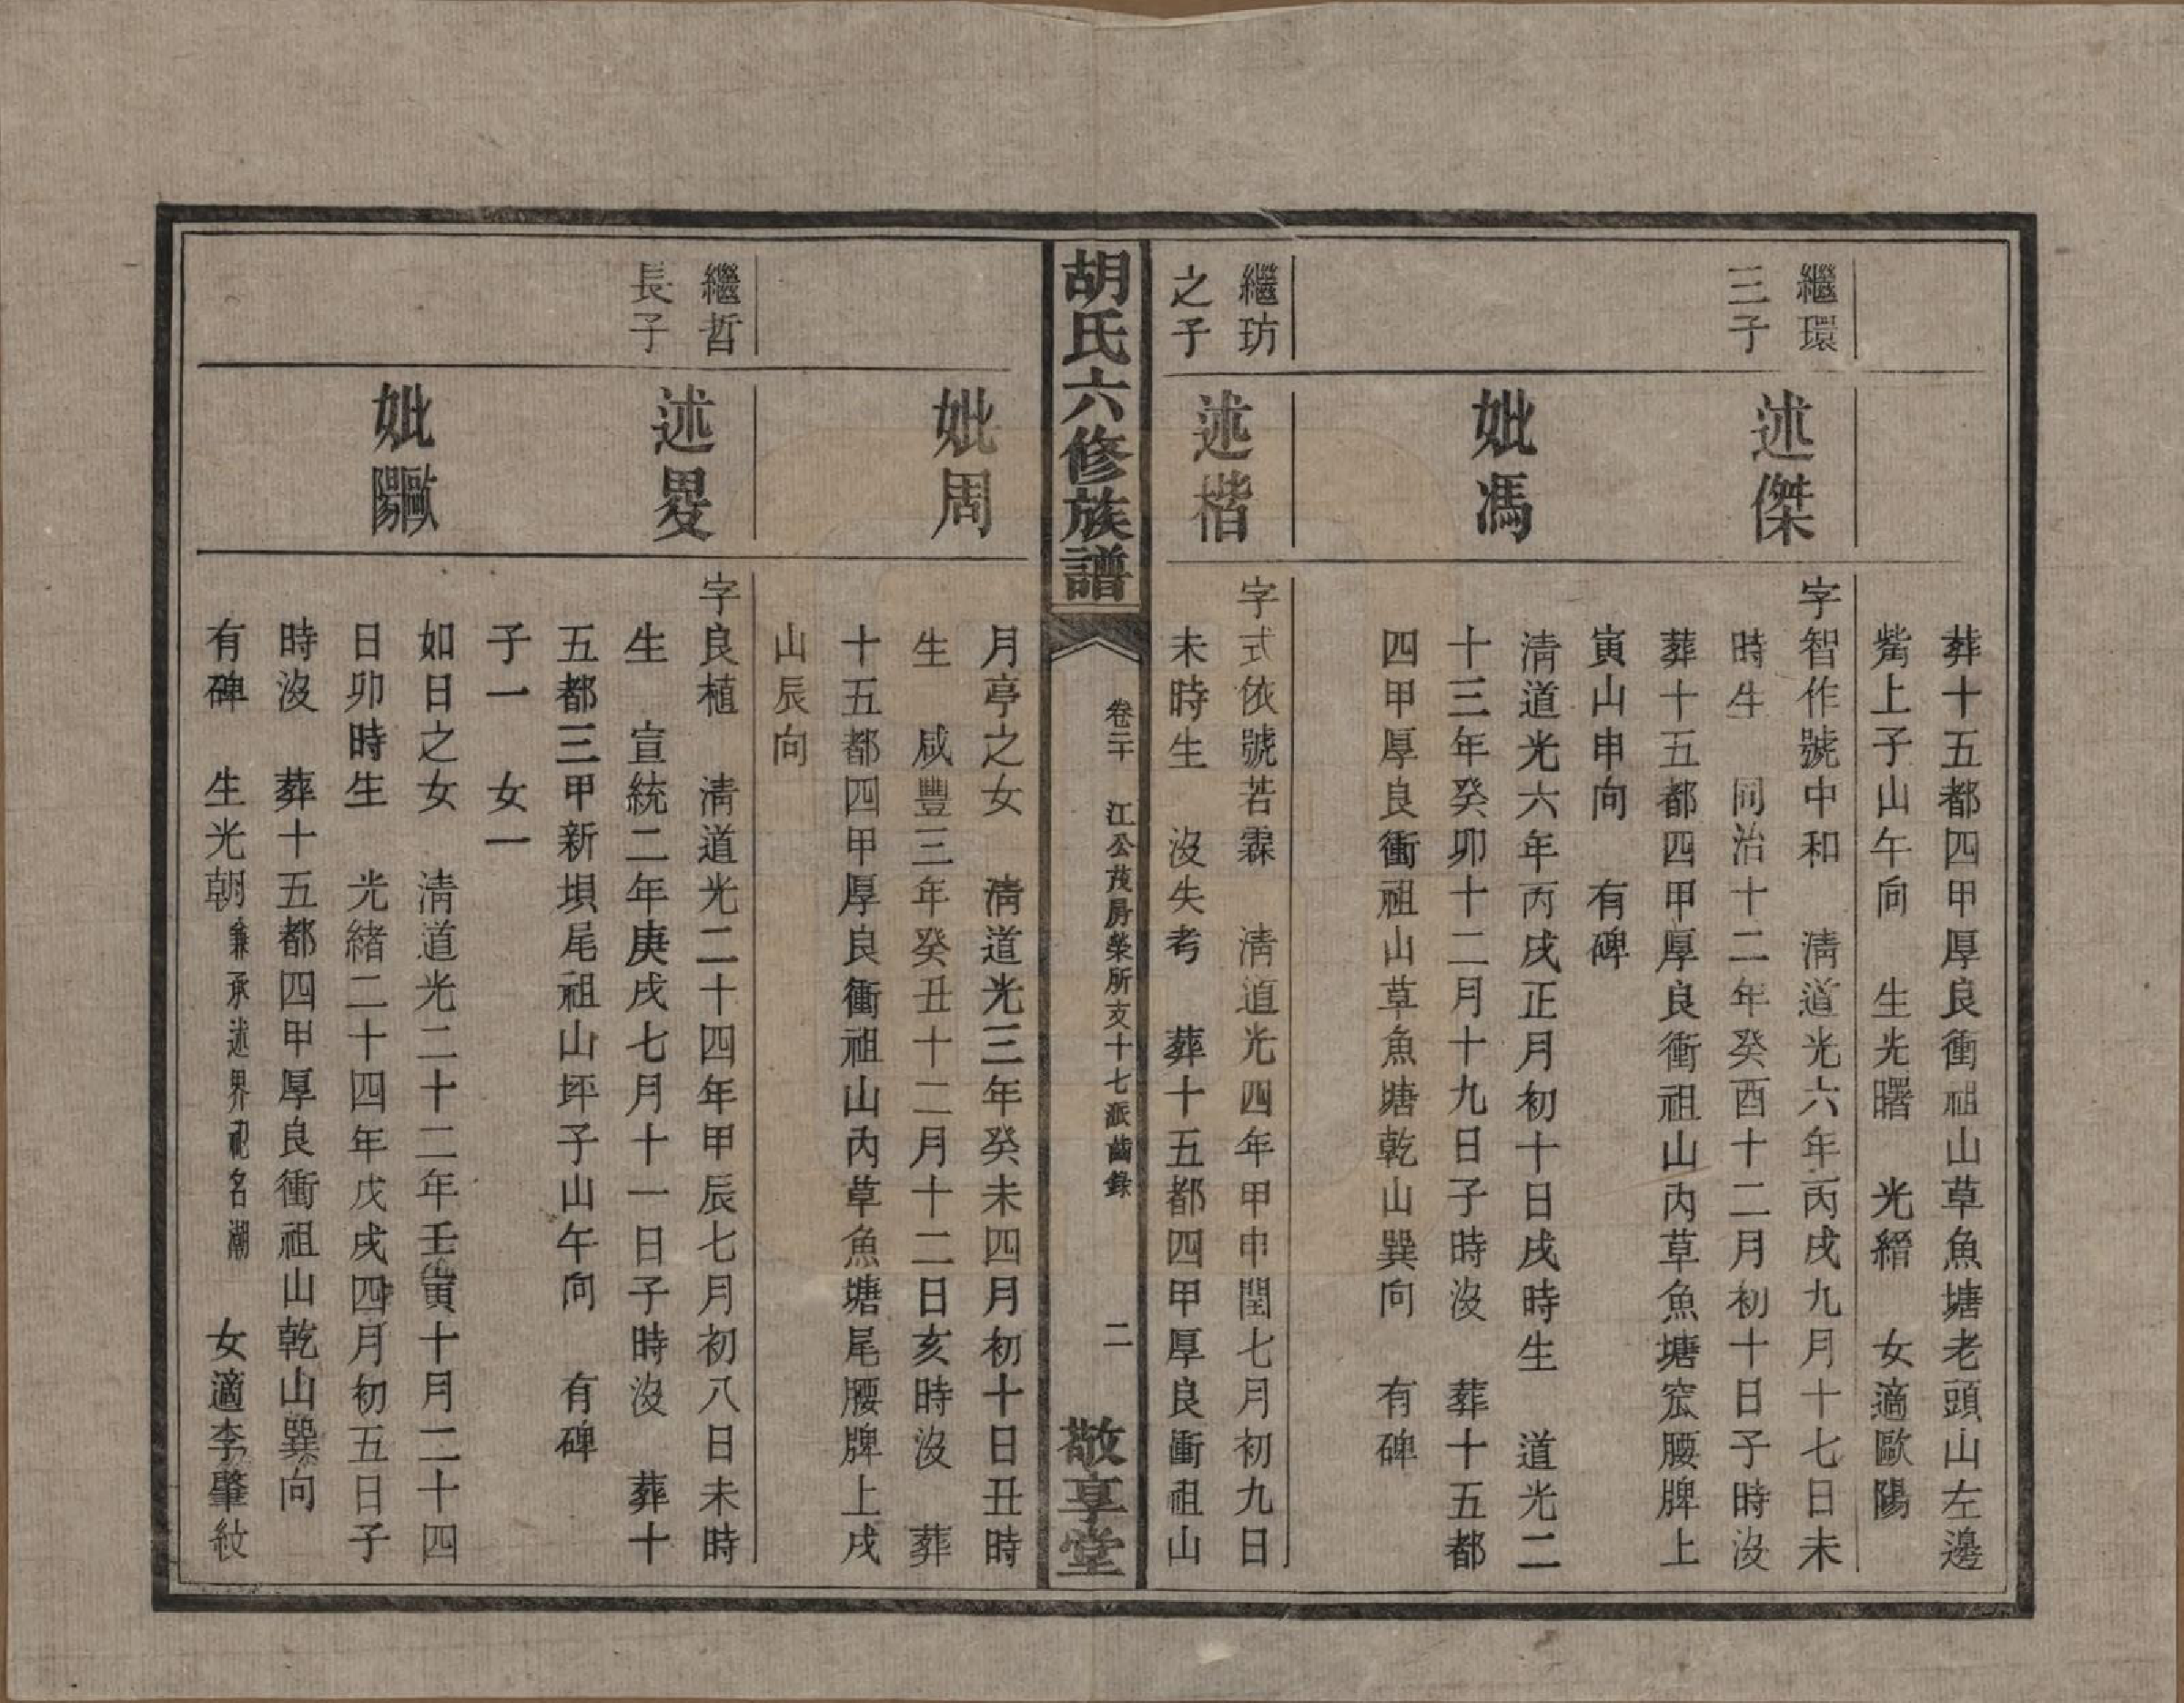 葬十五都四甲厚良衝祖山草魚塘老頭山左邊
嘴上子山午向　生光曙　光縉　女適歐陽
繼環
三子
述傑
字智作號中和　淸道光六年丙戌九月十七日未
時生　同治十二年癸酉十二月初十日子時沒
葬十五都四甲厚良衝祖山內草魚塘宏腰牌上
寅山申向　有碑
妣馮
淸道光六年丙戌正月初十日戌時生　道光二
十三年癸卯十二月十九日子時沒　葬十五都
四甲厚良衝祖山草魚塘乾山巽向　有碑
繼玏
之子
述楷
字式依號若霖　淸道光四年甲申閏七月初九日
未時生　沒失考　葬十五都四甲厚良衝祖山
胡氏六修族譜
卷二十　江公茂房榮所支十七派齒錄
二
敬享堂
妣周
月亭之女　淸道光三年癸未四月初十日丑時
生　咸豐三年癸丑十二月十二日亥時沒　葬
十五都四甲厚良衝祖山內草魚塘尾腰牌上戌
山辰向
繼哲
長子
述畟
字良植　淸道光二十四年甲辰七月初八日未時
生　宣統二年庚戌七月十一日子時沒　葬十
五都三甲新垻尾祖山坪子山午向　有碑
子一　女一
妣歐陽
如日之女　淸道光二十二年壬寅十月二十四
日卯時生　光緒二十四年戊戌四月初五日子
時沒　葬十五都四甲厚良衝祖山乾山巽向
有碑　生光朝兼承述界祀名潮　女適李肇紋